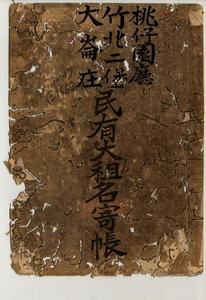 桃仔園廳
竹北二堡
大崙庄
民有大租名寄帳